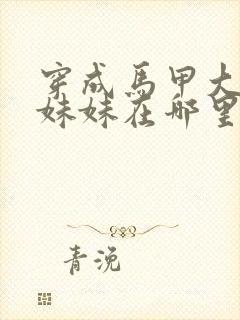 穿成馬甲大
妹妹在哪里
青浼